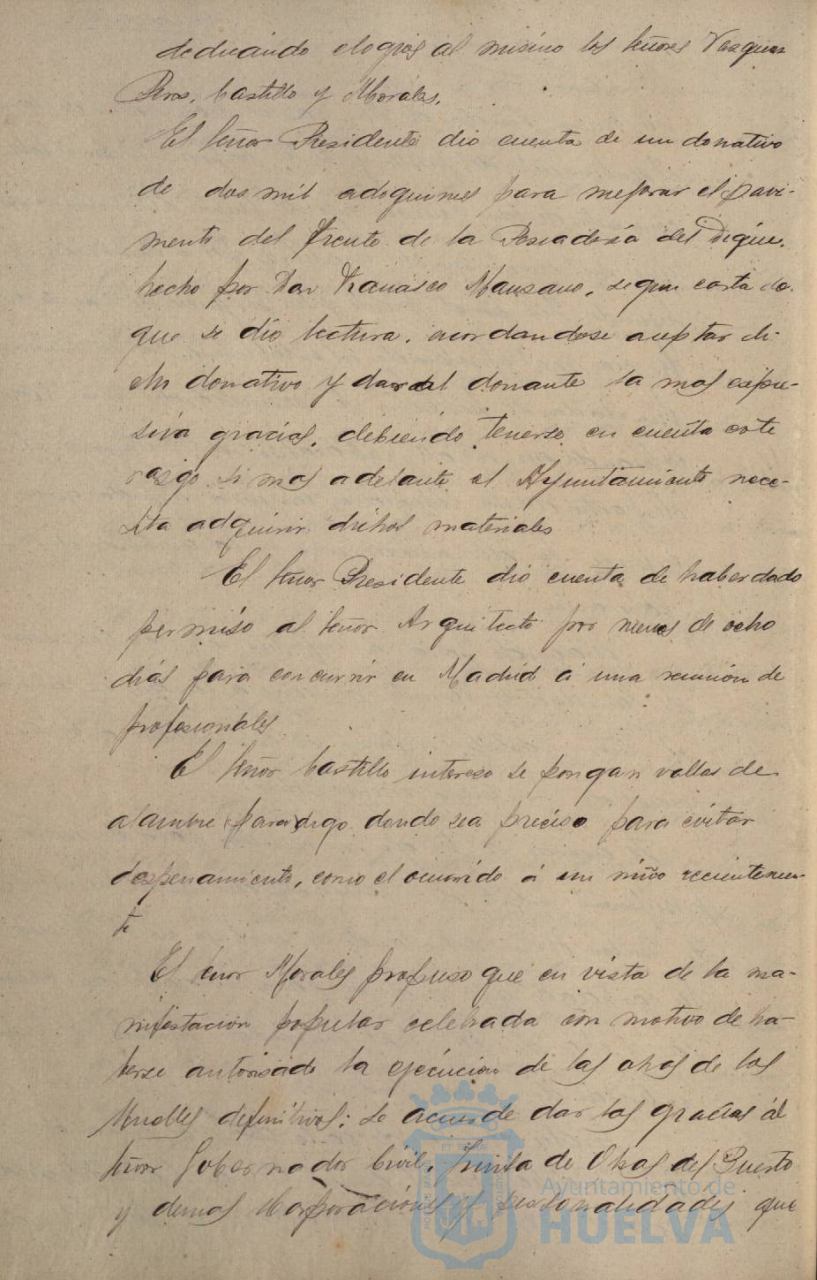 dedicando elogios al mismo los señores Vazquez
Peros, Castillo y Morales.
El señor Presidente dio cuenta de un donativo
de dos mil adoquines para mejorar el pavi-
mento del frente de la Pescaderia del Dique,
hecho por Don Francisco Manzano, segun carta de
que se dio lectura, acordandose aceptar di-
cho donativo y dar al donante la mas expre-
siva gracias, debiendo tenerse en cuenta este
rasgo si mas adelante el Ayuntamiento nece-
sita adquirir dichos materiales
El señor Presidente dio cuenta de haber dado
permiso al señor Arquitecto por menos de ocho
dias para concurrir en Madrid á una reunión de
profesionales
El señor Castillo intereso se pongan vallas de
alambre donde sea preciso para evitar
despenamiento, como el ocurrido á un niño recientemen-
te
El señor Morales propuso que en vista de la ma-
nifestacion popular celebrada con motivo de ha-
berse autorisado la ejecucion de las obras de los
Muelles definitivos; se acuerde dar las gracias al
señor Gobernador Civil, Junta de Obras del Puerto
y demas Corporaciones y personalidades que
Ayuntamiento de
HUELVA